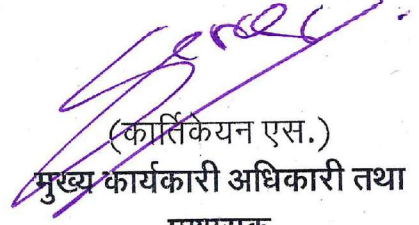 (कार्तिकेयन एस.)
मुख्य कार्यकारी अधिकारी तथा